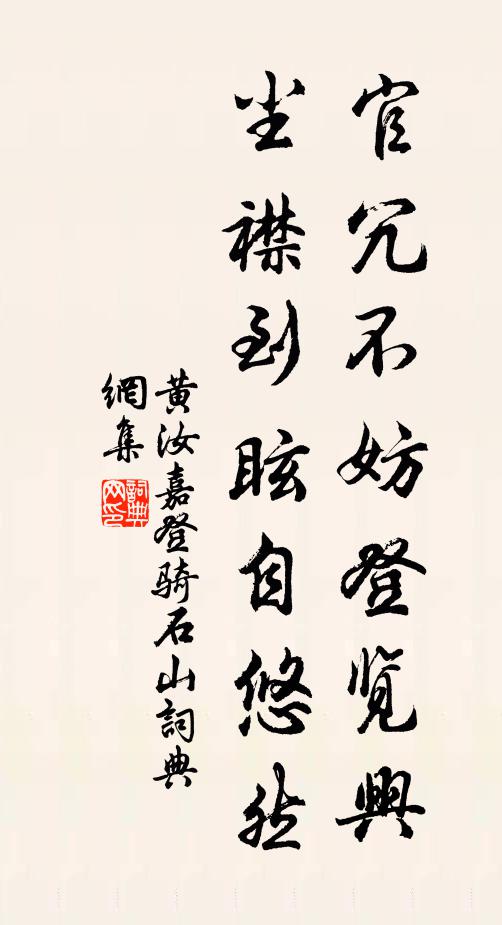 官冗不妨登览興
尘襟到眩自悠然
黄汝嘉登骑石山詞典
網集
詞典网印